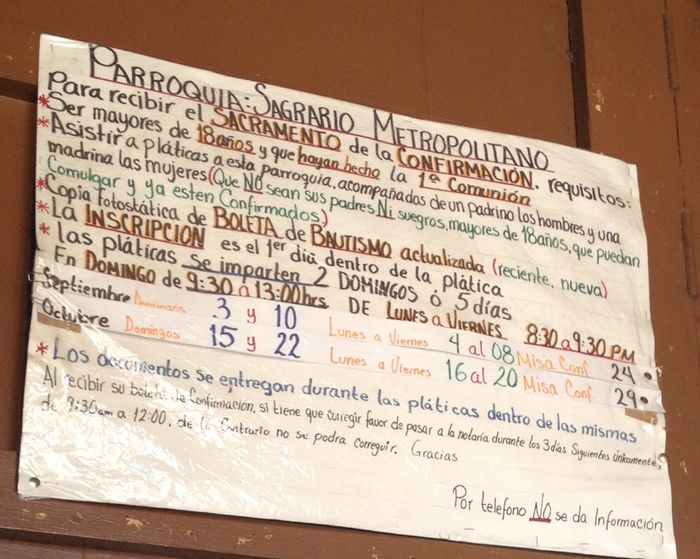 PARROQUIA: SAGRARIO METROPOLITANO
Para recibir el SACRAMENTO de la CONFIRMACIÓN. requisitos:
*Ser mayores de 18 años y que hayan hecho la 1ª Comunión
*Asistir a pláticas a esta parroquia, acompañados de un padrino los hombres y una
madrina las mujeres (Que NO sean sus padres Ni suegros, mayores de 18 años, que puedan
Comulgar y ya esten Confirmados)
*Copia Fotostática de BOLETA de BAUTISMO actualizada (reciente, nueva)
*La INSCRIPCIÓN es el 1er día dentro de la plática
*las pláticas se imparten 2 DOMINGOS ó 5 días
En DOMINGO de 9:30 a 13:00 hrs DE LUNES a VIERNES 8:30 a 9:30 PM
Septiembre Domingos 3 y 10 Lunes a Viernes 4 al 08 Misa Conf. 24
Octubre Domingos 15 y 22 Lunes a Viernes 16 al 20 Misa Conf. 29
*Los documentos se entregan durante las pláticas dentro de las mismas
Al recibir su boleta de Confirmación, si tiene que corregir favor de pasar a la notaría durante los 3 días Siguientes Únicamente,
de 9:30am a 12:00, de lo Contrario no se podra corregir. Gracias
Por telefono NO se da Información